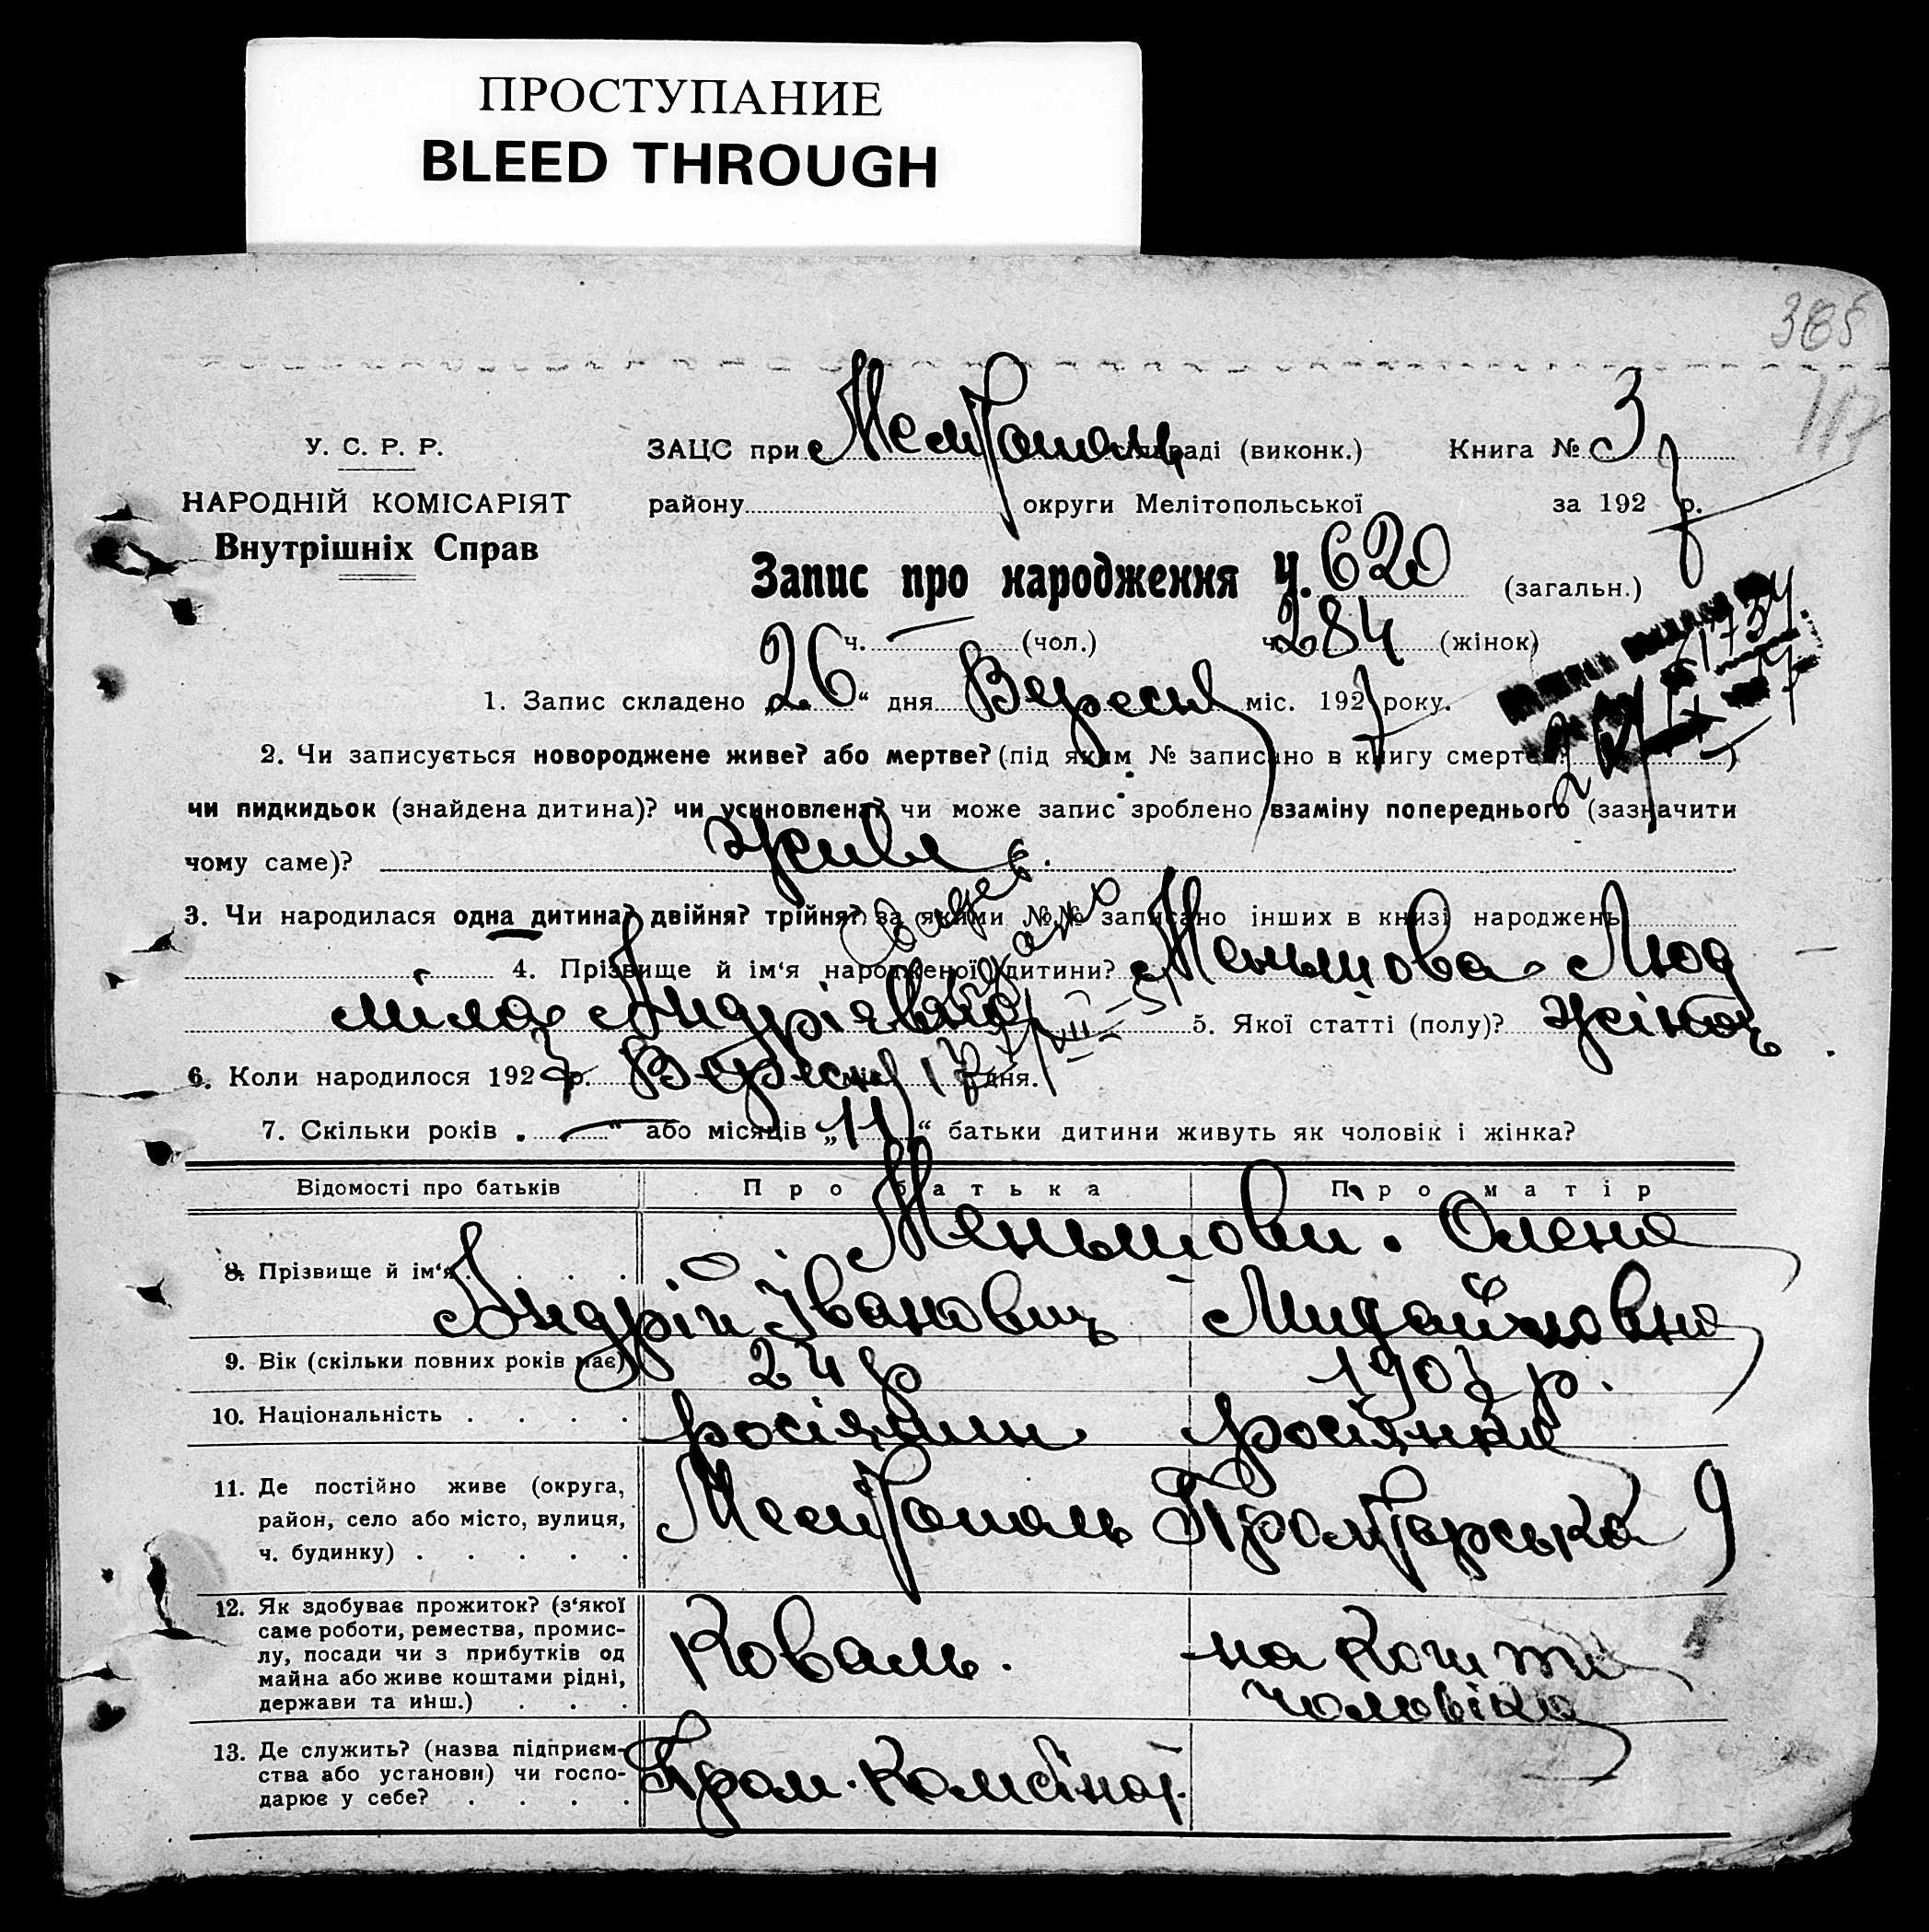 ПРОСТУПАНИЕ
BLEED THROUGH
385
117
У. С. Р. Р.
НАРОДНІЙ КОМІСАРІЯТ
Внутрішніх Справ
ЗАЦС при Мелітополь раді (виконк.) Книга № 3
району округи Мелітопольської за 1927 р.
Запис про народження Ч. 620 (загальн.)
ч. — (чол.) ч. 284 (жінок)
1. Запис складено „26“ дня Вересня міс. 1927 року.
2. Чи записується новороджене живе? або мертве? (під яким № записано в книгу смертей?)
чи пидкидьок (знайдена дитина)? чи усиновлена? чи може запис зроблено взаміну попереднього (зазначити
чому саме)? живе
3. Чи народилася одна дитина? двійня? трійня? за якими №№ записано інших в книзі народжень
4. Прізвище й ім‘я народженої дитини? Меньшова Люд
міла Андріявна 5. Якої статті (полу)? жіноч
6. Коли народилося 1927 р. Вересня міс. 17 дня.
7. Скільки років „—“ або місяців „11“ батьки дитини живуть як чоловік і жінка?
Відомості про батьків Про батька Про матір
8. Прізвище й ім‘я Меньшови. Олена
Андрій Іванович Михайловна
9. Вік (скільки повних років має) 24 р 1907 р.
10. Національність росіянин росіянка
11. Де постійно живе (округа,
район, село або місто, вулиця,
ч. будинку) Мелітополь Пролетарська 9
12. Як здобуває прожиток? (з‘якої
саме роботи, ремества, промис-
лу, посади чи з прибутків од
майна або живе коштами рідні,
держави та инш.) Коваль. на кошти
чоловіка
13. Де служить? (назва підприєм-
ства або установи) чи госпо-
дарює у себе? Пром. Комбінат.